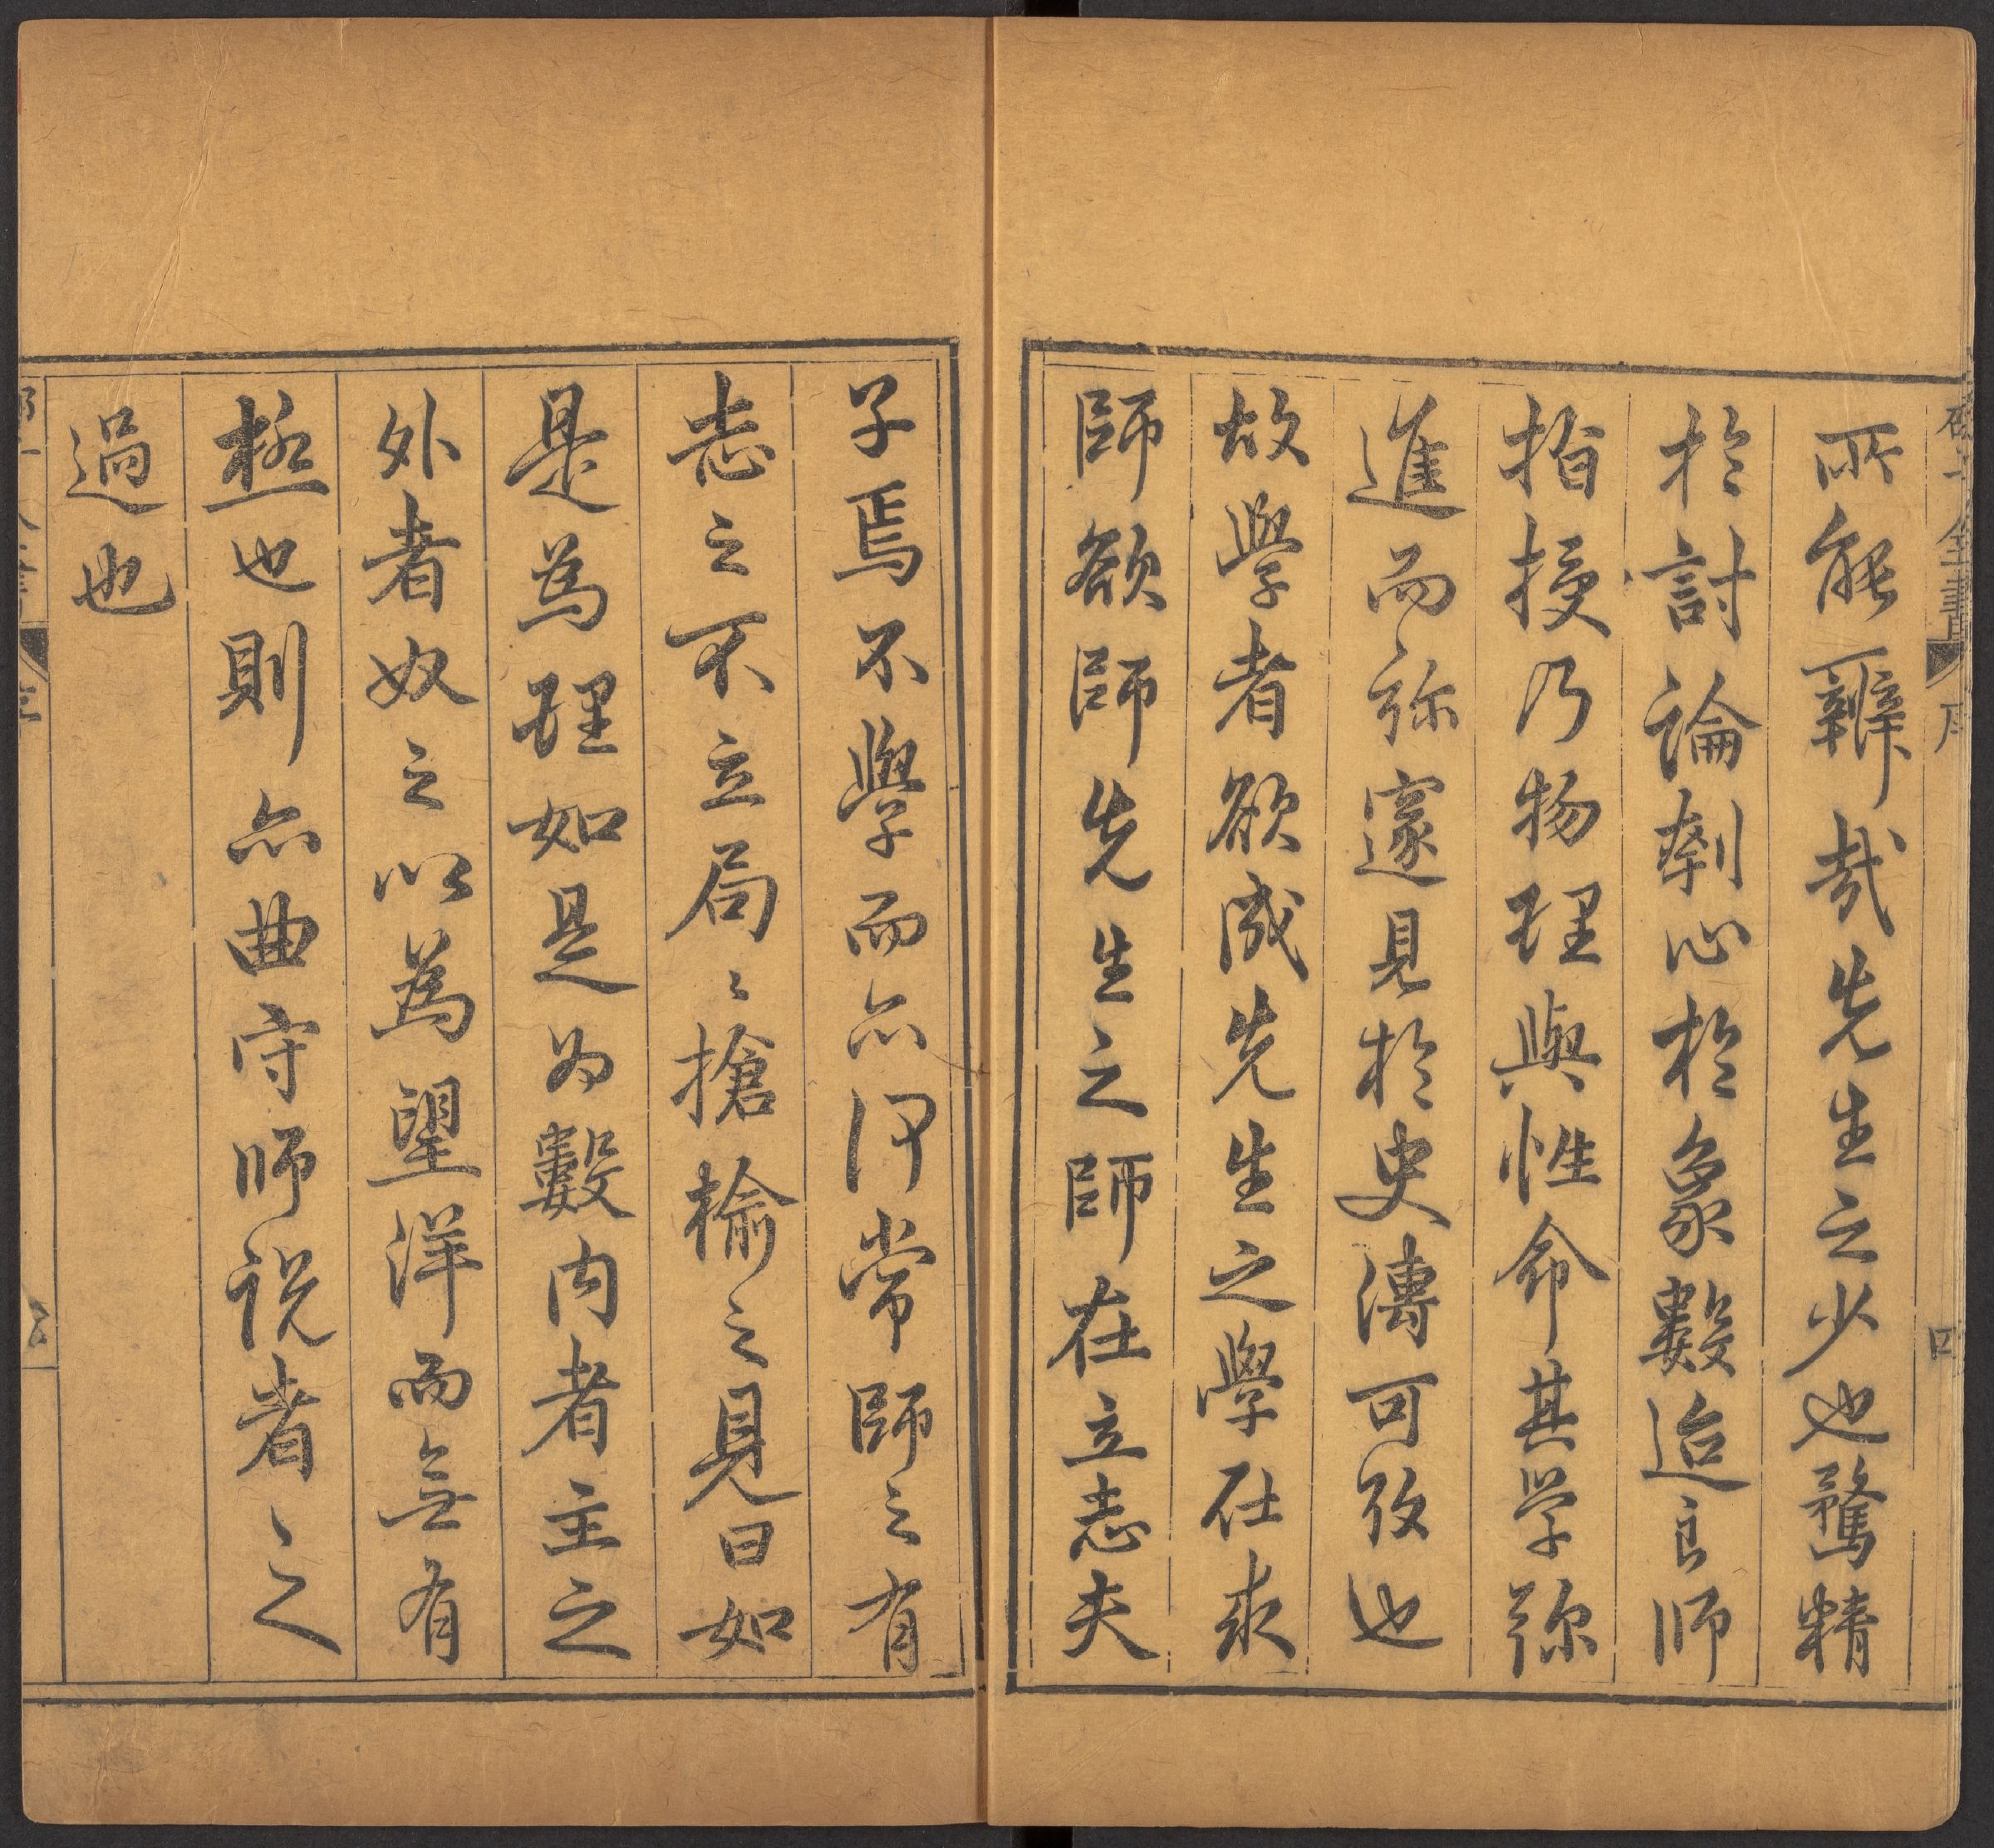 所能辯哉先生之少也騖精
於討論刳心於象數迨良師
指授乃物理與性命其学弥
進而弥邃見於史傳可攷也
故學者欲成先生之學在求
師欲師先生之師在立志夫
子焉不學而亦何常師之有
志之不立局〻搶榆之見曰如
是為理如是为數内者主之
外者奴之以為望洋而無有
極也則亦曲守師說者之
過也